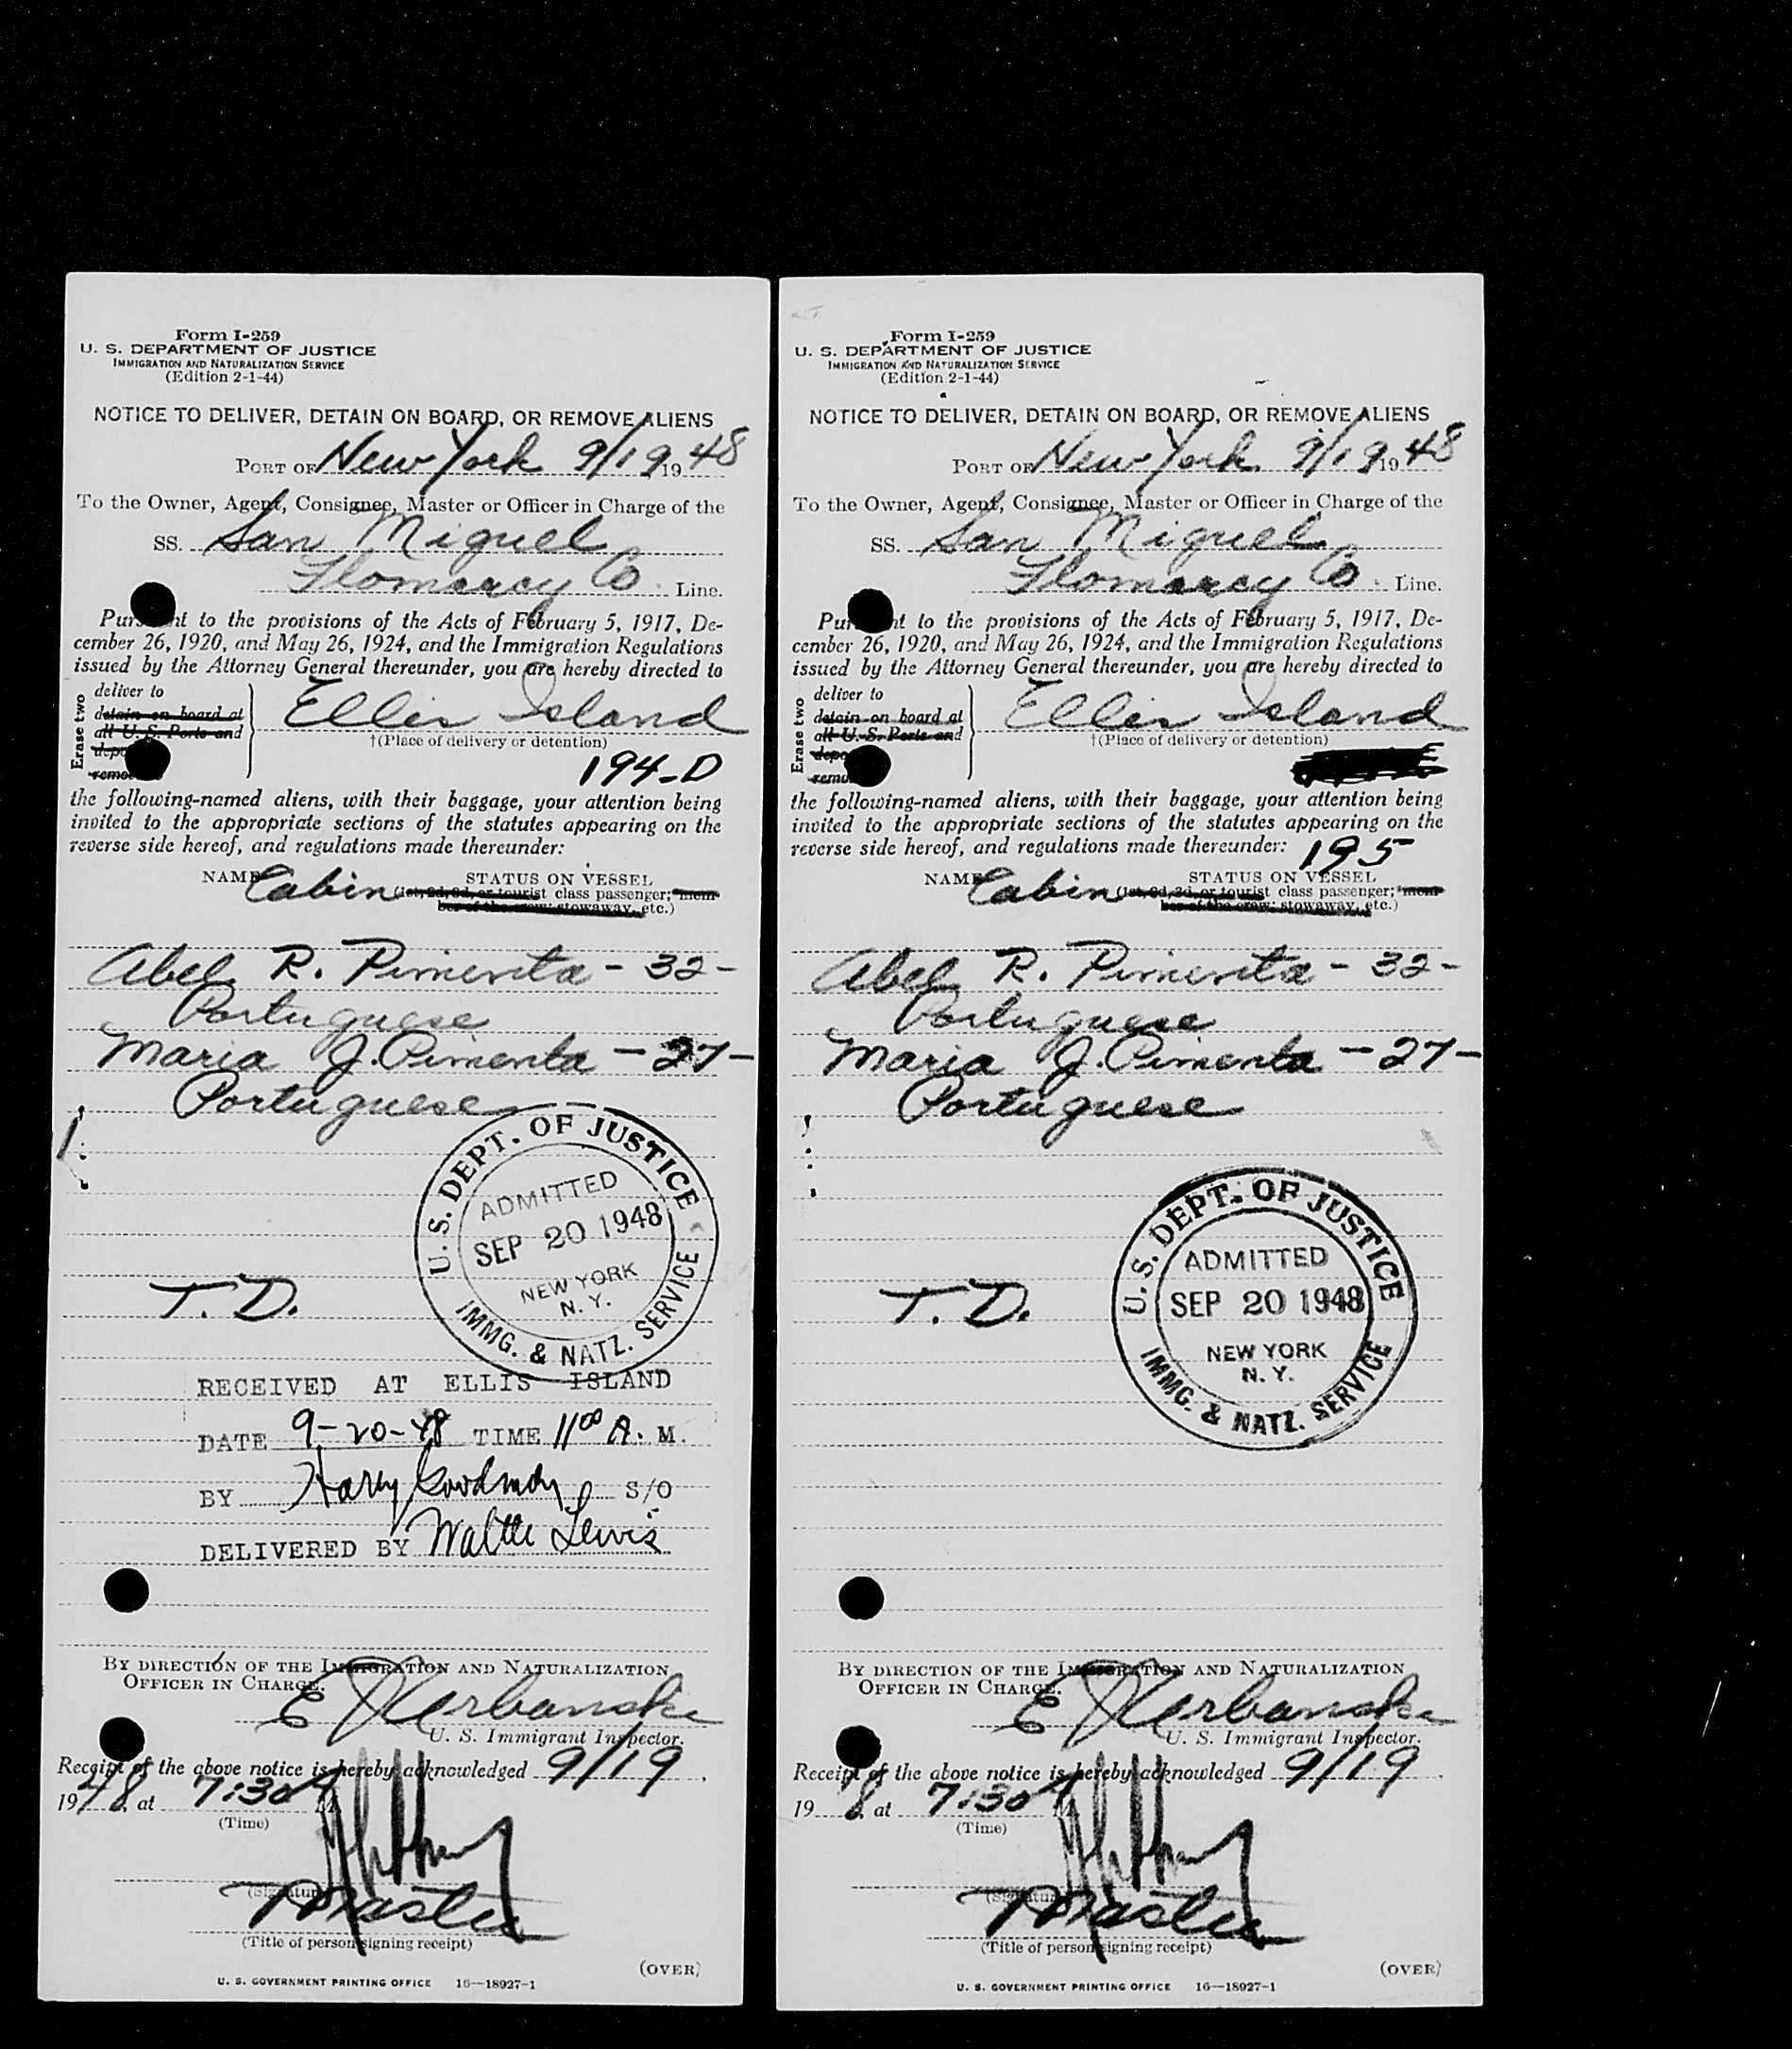 Form I-259
U. S. DEPARTMENT OF JUSTICE
IMMIGRATION AND NATURALIZATION SERVICE
(Edition 2-1-44)
NOTICE TO DELIVER, DETAIN ON BOARD, OR REMOVE ALIENS
PORT OF New York 9/19 1948
To the Owner, Agent, Consignee, Master or Officer in Charge of the
SS. San Miguel
Flomarcy Co. Line.
to the provisions of the Acts of February 5, 1917, De-
cember 26, 1920, and May 26, 1924, and the Immigration Regulations
issued by the Attorney General thereunder, you are hereby directed to
Erase two
deliver to
detain on board at
all U. S. Ports and
Ellis Island
†(Place of delivery or detention)
194-D
the following-named aliens, with their baggage, your attention being
invited to the appropriate sections of the statutes appearing on the
reverse side hereof, and regulations made thereunder:
NAME STATUS ON VESSEL
Cabin (1st, 2d, 3d, or tourist class passenger; mem-
ber of the crew; stowaway, etc.)
Abel R. Pimenta - 32 -
Portuguese
Maria J. Pimenta - 27 -
Portuguese
U. S. DEPT. OF JUSTICE
ADMITTED
SEP 20 1948
NEW YORK
N. Y.
IMMG. & NATZ. SERVICE
T. D.
RECEIVED AT ELLIS ISLAND
DATE 9-20-48 TIME 11 00 A. M.
BY Harry Goodman S/O
DELIVERED BY Walter Lewis
BY DIRECTION OF THE IMMIGRATION AND NATURALIZATION
OFFICER IN CHARGE.
U. S. Immigrant Inspector.
Receipt of the above notice is hereby acknowledged 9/19,
1948, at 7:30 A M.
(Time)
(Signature)
Master
(Title of person signing receipt)
(OVER)
U. S. GOVERNMENT PRINTING OFFICE 16—18927-1
Form I-259
U. S. DEPARTMENT OF JUSTICE
IMMIGRATION AND NATURALIZATION SERVICE
(Edition 2-1-44)
NOTICE TO DELIVER, DETAIN ON BOARD, OR REMOVE ALIENS
PORT OF New York 9/19 1948
To the Owner, Agent, Consignee, Master or Officer in Charge of the
SS. San Miguel
Flomarcy Co. Line.
to the provisions of the Acts of February 5, 1917, De-
cember 26, 1920, and May 26, 1924, and the Immigration Regulations
issued by the Attorney General thereunder, you are hereby directed to
Erase two
deliver to
detain on board at
all U. S. Ports and
Ellis Island
†(Place of delivery or detention)
the following-named aliens, with their baggage, your attention being
invited to the appropriate sections of the statutes appearing on the
reverse side hereof, and regulations made thereunder: 195
NAME STATUS ON VESSEL
Cabin (1st, 2d, 3d, or tourist class passenger; mem-
ber of the crew; stowaway, etc.)
Abel R. Pimenta - 32 -
Portuguese
Maria J. Pimenta - 27 -
Portuguese
U. S. DEPT. OF JUSTICE
ADMITTED
SEP 20 1948
NEW YORK
N. Y.
IMMG. & NATZ. SERVICE
T. D.
BY DIRECTION OF THE IMMIGRATION AND NATURALIZATION
OFFICER IN CHARGE.
U. S. Immigrant Inspector.
Receipt of the above notice is hereby acknowledged 9/19.
19 8, at 7:30 A M.
(Time)
(Signature)
Master
(Title of person signing receipt)
(OVER)
U. S. GOVERNMENT PRINTING OFFICE 16—18927-1